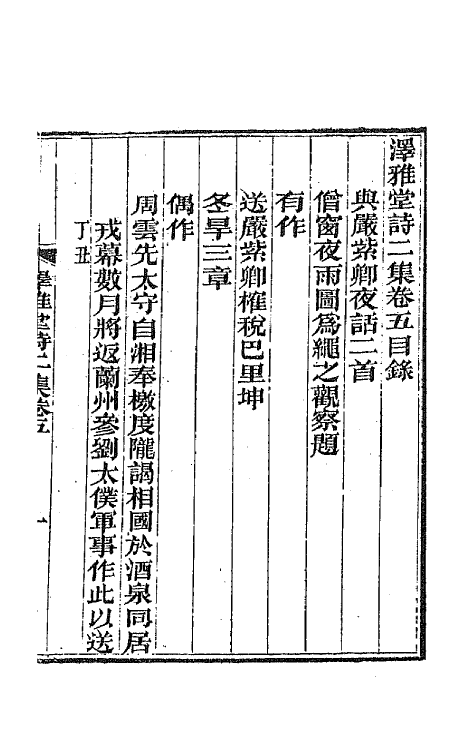 澤雅堂詩二集卷五目錄
與嚴紫卿夜話二首
僧窗夜雨圖爲繩之觀察題
有作
送嚴紫卿榷稅巴里坤
冬旱三章
偶作
周雲先太守自湘奉檄度隴謁相國於酒泉同居
戎幕數月將返蘭州參劉太僕軍事作此以送
丁丑
澤雅堂詩二集卷五 一